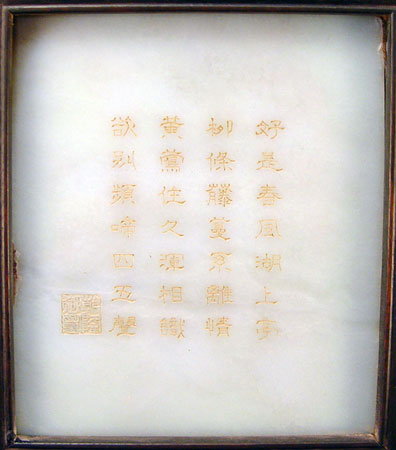 好是春風湖上亭
柳條藤蔓系離情
黃鶯住久渾相識
欲別頻啼四五聲